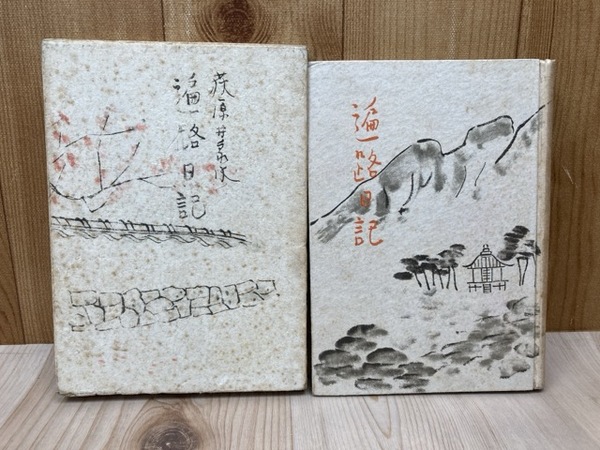 荻原井泉水
遍路日記
遍路日記